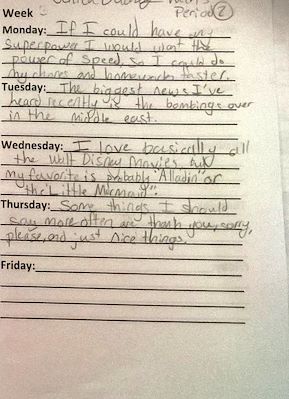 Week 3
Period 2
Monday: If I could have any
Superpower I would want the
power of speed, so I could do
my chores and homeworks faster.
Tuesday: The biggest news I've
heard recently is the bombings over
in the middle east.
Wednesday: I love basically all
the Walt Disney Movies but
my favorite is probably "Alladin" or
the "Little Mermaid".
Thursday: Some things I should
say more often are thank you, sorry,
please, and just nice things.
Friday: